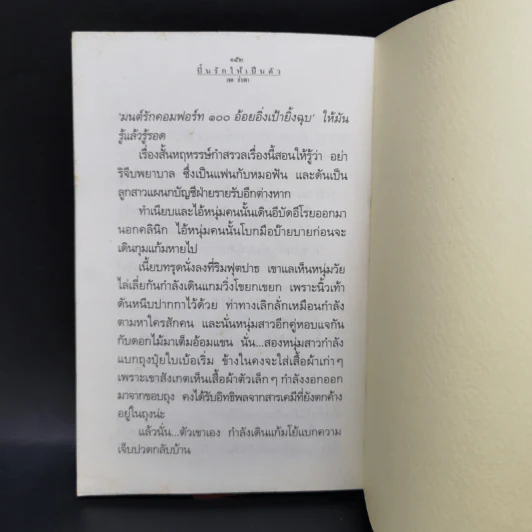 ๑๕๒
ปั้ นรั ก ใ ห้ เ ป็ น ตั ว
'มนต์รักคอมฟอร์ท ๑๐๐ อ้อยอิ่งเป้ายิ้งฉุบ' ให้มัน
รู้แล้วรู้รอด
เรื่องสั้นหฤหรรษ์กำสรวลเรื่องนี้สอนให้รู้ว่า อย่า
ริจีบพยาบาล ซึ่งเป็นแฟนกับหมอฟัน และดันเป็น
ลูกสาวแผนกบัญชีฝ่ายรายรับอีกต่างหาก
ทำเนียบและไอ้หนุ่มคนนั้นเดินอีบัดอีโรยออกมา
นอกคลินิก ไอ้หนุ่มคนนั้นโบกมือบ๊ายบายก่อนจะ
เดินกุมแก้มหายไป
เนี้ยบทรุดนั่งลงที่ริมฟุตปาธ เขาแลเห็นหนุ่มวัย
ไล่เลี่ยกันกำลังเดินแกมวิ่งโขยกเขยก เพราะนิ้วเท้า
ดันหนีบปากกาไว้ด้วย ท่าทางเลิกลั่กเหมือนกำลัง
ตามหาใครสักคน และนั่นหนุ่มสาวอีกคู่หอบแจกัน
กับดอกไม้มาเต็มอ้อมแขน นั่น...สองหนุ่มสาวกำลัง
แบกถุงปุ๋ยใบเบ้อเริ่ม ข้างในคงจะใส่เสื้อผ้าเก่าๆ
เพราะเขาสังเกตเห็นเสื้อผ้าตัวเล็กๆ กำลังงอกออก
มาจากขอบถุง คงได้รับอิทธิพลจากสารเคมีที่ยังตกค้าง
อยู่ในถุงน่ะ
แล้วนั่น...ตัวเขาเอง กำลังเดินแก้มโย้แบกความ
เจ็บปวดกลับบ้าน